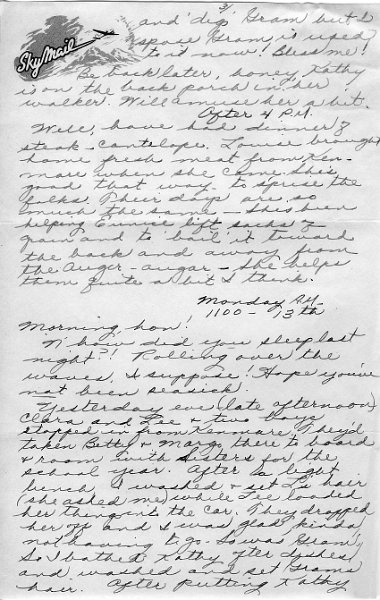 3/
and dig Gram but I
spose Gram is used
to it now! Bless me!
SkyMail
Be back later, honey, Kathy
is on the back porch in her
walker. Will amuse her a bit.
After 4 P.M.
Well, have had dinner of
steak - cantelope. Louise brought
home fresh meat from Ken-
mare when she come. She's
good that way - to s'prise the
folks. Their days are so
much the same - She's been
helping Eunice lift sacks of
grain and to bail it toward
the back and away from
the Auger - augar - She helps
them quite a bit I think.
Monday A.M.
1100 - 13th
Morning hon!
'N how did you sleep last
night?! Rolling over the
waves, I suppose! Hope you've
not been seasick!
Yesterday eve (late afternoon)
Clara and Lee & two boys
stopped in from Kenmare. They'd
taken Betty & Margo there to board
& room with Sisters for the
school year. After a light
lunch I washed & set L's hair
(she asked me) while Lee loaded
her things in the car. They dropped
her off and I was glad, kinda,
not having to go. So was Gram.
So I bathed Kathy after dishes
and washed and set Grams
hair. After putting Kathy